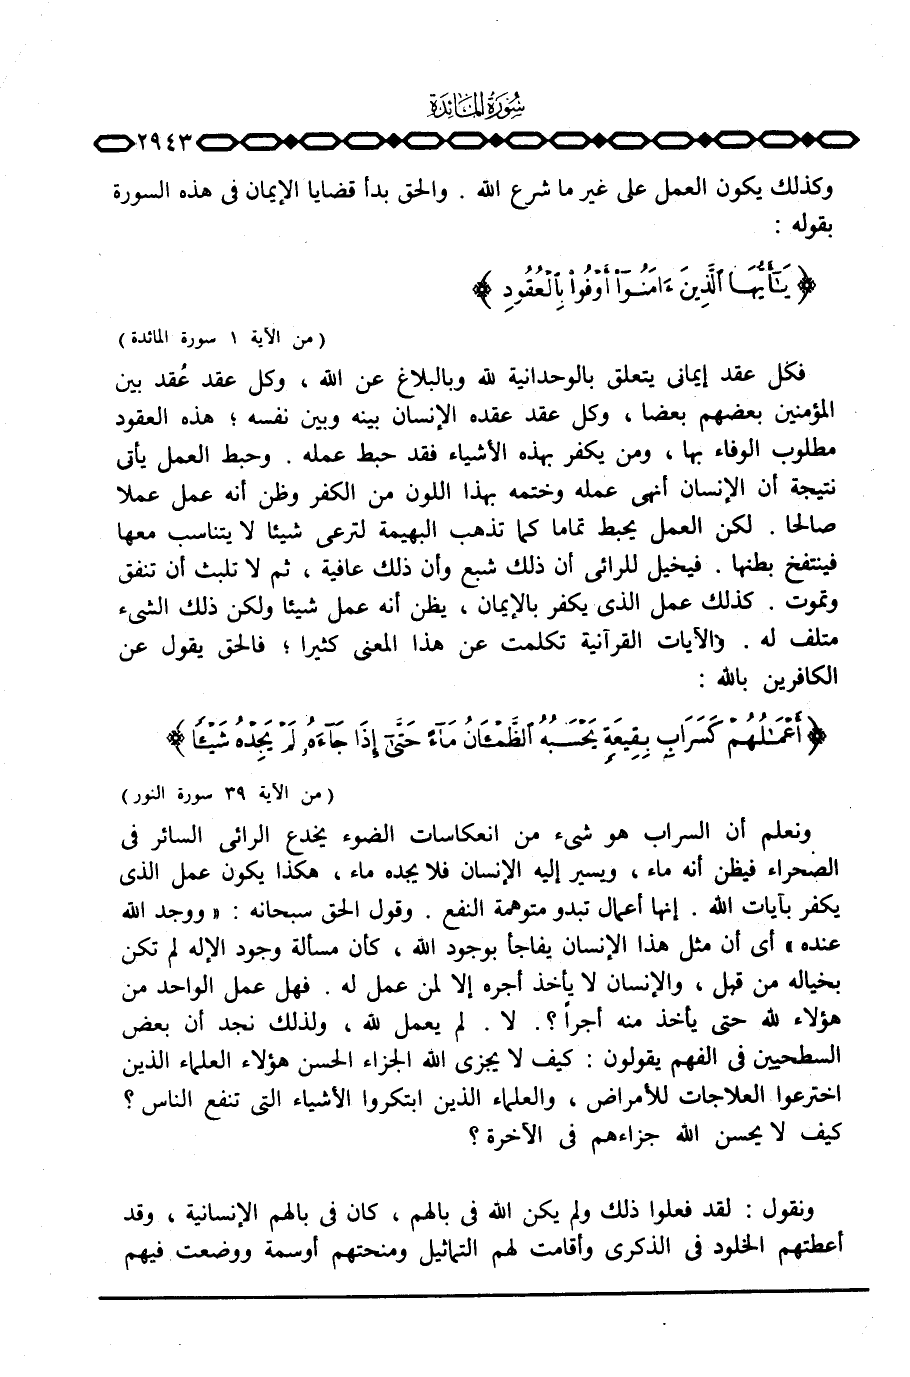 سُورَةُ المَائِدَة
٢٩٤٣
وكذلك يكون العمل على غير ما شرع الله . والحق بدأ قضايا الإيمان فى هذه السورة
بقوله :
﴿ يَٰٓأَيُّهَا ٱلَّذِينَ ءَامَنُوٓا۟ أَوْفُوا۟ بِٱلْعُقُودِ ﴾
( من الآية ١ سورة المائدة )
فكل عقد إيمانى يتعلق بالوحدانية لله وبالبلاغ عن الله ، وكل عقد عُقد بين
المؤمنين بعضهم بعضا ، وكل عقد عقده الإنسان بينه وبين نفسه ؛ هذه العقود
مطلوب الوفاء بها ، ومن يكفر بهذه الأشياء فقد حبط عمله . وحبط العمل يأتى
نتيجة أن الإنسان أنهى عمله وختمه بهذا اللون من الكفر وظن أنه عمل عملا
صالحا . لكن العمل يحبط تماما كما تذهب البهيمة لترعى شيئا لا يتناسب معها
فينتفخ بطنها . فيخيل للرائى أن ذلك شبع وأن ذلك عافية ، ثم لا تلبث أن تنفق
وتموت . كذلك عمل الذى يكفر بالإيمان ، يظن أنه عمل شيئا ولكن ذلك الشىء
متلف له . والآيات القرآنية تكلمت عن هذا المعنى كثيرا ؛ فالحق يقول عن
الكافرين بالله :
﴿ أَعْمَٰلُهُمْ كَسَرَابٍۭ بِقِيعَةٍ يَحْسَبُهُ ٱلظَّمْـَٔانُ مَآءً حَتَّىٰٓ إِذَا جَآءَهُۥ لَمْ يَجِدْهُ شَيْـًٔا ﴾
( من الآية ٣٩ سورة النور )
ونعلم أن السراب هو شىء من انعكاسات الضوء يخدع الرائى السائر فى
الصحراء فيظن أنه ماء ، ويسير إليه الإنسان فلا يجده ماء ، هكذا يكون عمل الذى
يكفر بآيات الله . إنها أعمال تبدو متوهمة النفع . وقول الحق سبحانه : « ووجد الله
عنده » أى أن مثل هذا الإنسان يفاجأ بوجود الله ، كأن مسألة وجود الإله لم تكن
بخياله من قبل ، والإنسان لا يأخذ أجره إلا لمن عمل له . فهل عمل الواحد من
هؤلاء لله حتى يأخذ منه أجراً ؟. لا . لم يعمل لله ، ولذلك نجد أن بعض
السطحيين فى الفهم يقولون : كيف لا يجزى الله الجزاء الحسن هؤلاء العلماء الذين
اخترعوا العلاجات للأمراض ، والعلماء الذين ابتكروا الأشياء التى تنفع الناس ؟
كيف لا يحسن الله جزاءهم فى الآخرة ؟
ونقول : لقد فعلوا ذلك ولم يكن الله فى بالهم ، كان فى بالهم الإنسانية ، وقد
أعطتهم الخلود فى الذكرى وأقامت لهم التماثيل ومنحتهم أوسمة ووضعت فيهم